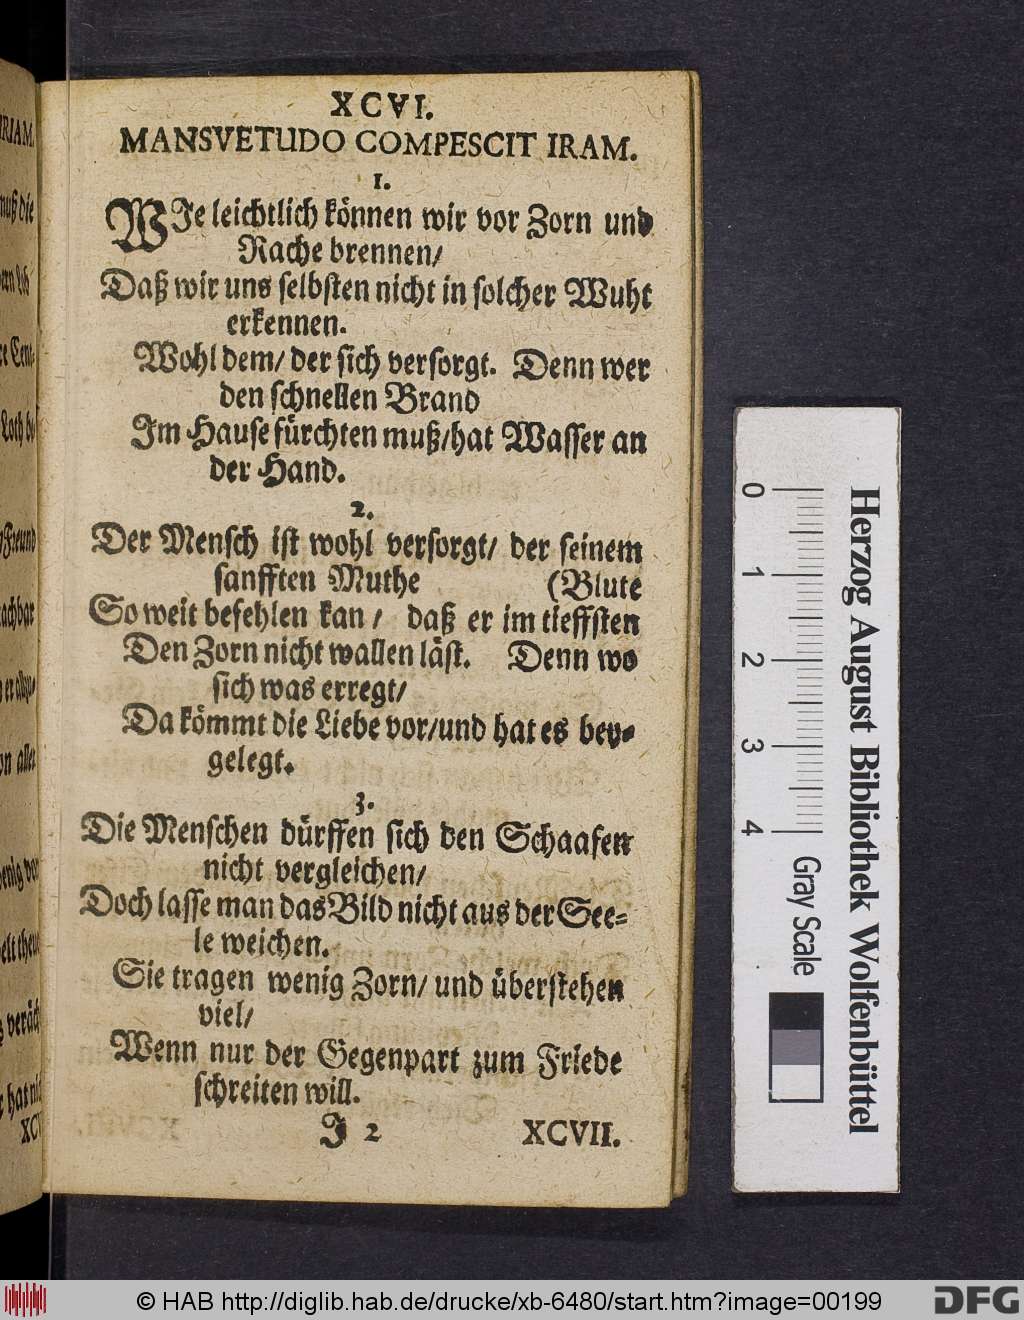 XCVI.
MANSVETUDO COMPESCIT IRAM.
1.
WIe leichtlich können wir vor Zorn und
Rache brennen/
Daß wir uns selbsten nicht in solcher Wuht
erkennen.
Wohl dem/ der sich versorgt. Denn wer
den schnellen Brand
Im Hause fürchten muß/hat Wasser an
der Hand.
2.
Der Mensch ist wohl versorgt/ der seinem
sanfften Muthe (Blute
So weit befehlen kan / daß er im tieffsten
Den Zorn nicht wallen läst. Denn wo
sich was erregt/
Da kömmt die Liebe vor/und hat es bey=
gelegt.
3.
Die Menschen dürffen sich den Schaafen
nicht vergleichen/
Doch lasse man das Bild nicht aus der See=
le weichen.
Sie tragen wenig Zorn/ und überstehen
viel/
Wenn nur der Gegenpart zum Friede
schreiten will.
J 2 XCVII.
IRIAM.
muß die
Cent=
Loth
Freund
achbar
on aller
wenig
hat
XCV
0 1 2 3 4
Gray Scale
Herzog August Bibliothek Wolfenbüttel
© HAB http://diglib.hab.de/drucke/xb-6480/start.htm?image=00199
DFG